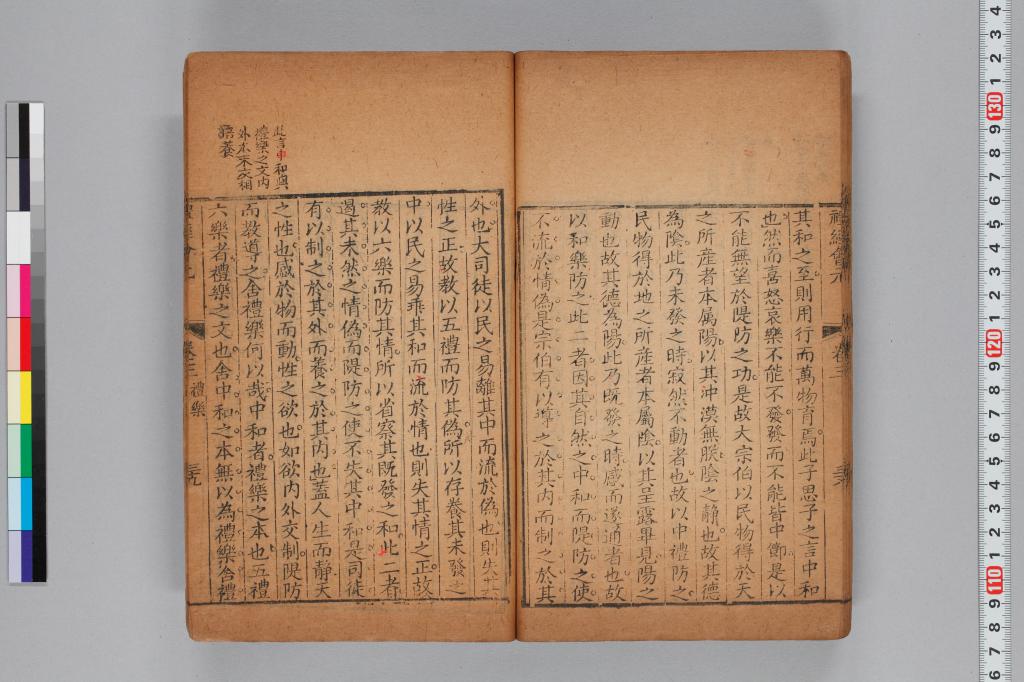 其和之至則用行而萬物育焉此子思子之言中和
也然而喜怒哀樂不能不發發而不能皆中節是以
不能無望於隄防之功是故大宗伯以民物得於天
之所産者本属陽以其沖漠無朕陰之靜也故其德
為陰此乃未發之時寂然不動者也故以中禮防之
民物得於地之所産者本屬陰以其呈露畢見陽之
動也故其德為陽此乃既發之時感而遂通者也故
以和樂防之此二者因其自然之中和而隄防之使
不流於情偽是宗伯有以導之於其内而制之於其
此言中和與
禮樂之文内
外本末交相
培養
外也大司徒以民之易離其中而流於偽也則失其
性之正故教以五禮而防其偽所以存養其未發之
中以民之易乖其和而流於情也則失其情之正故
教以六樂而防其情所以省察其既發之和此二者
遏其未然之情偽而隄防之使不失其中和是司徒
有以制之於其外而養之於其内也蓋人生而靜天
之性也感於物而動性之欲也如欲内外交制隄防
而教導之舍禮樂何以哉中和者禮樂之本也五禮
六樂者禮樂之文也舍中和之本無以為禮樂舍禮
卷三 禮樂